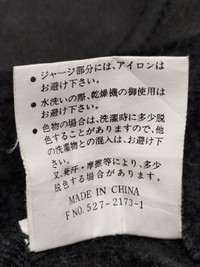 ● ジャージ部分には、アイロンは
お避け下さい。
● 水洗いの際、乾燥機の御使用は
お避け下さい。
● 色物の場合は、洗濯時に多少脱
色することがありますので、他
の洗濯物との混入は、お避け下
さい。
又、発汗・摩擦等により、多少
脱色する場合があります。
MADE IN CHINA
F NO. 527-2173-1